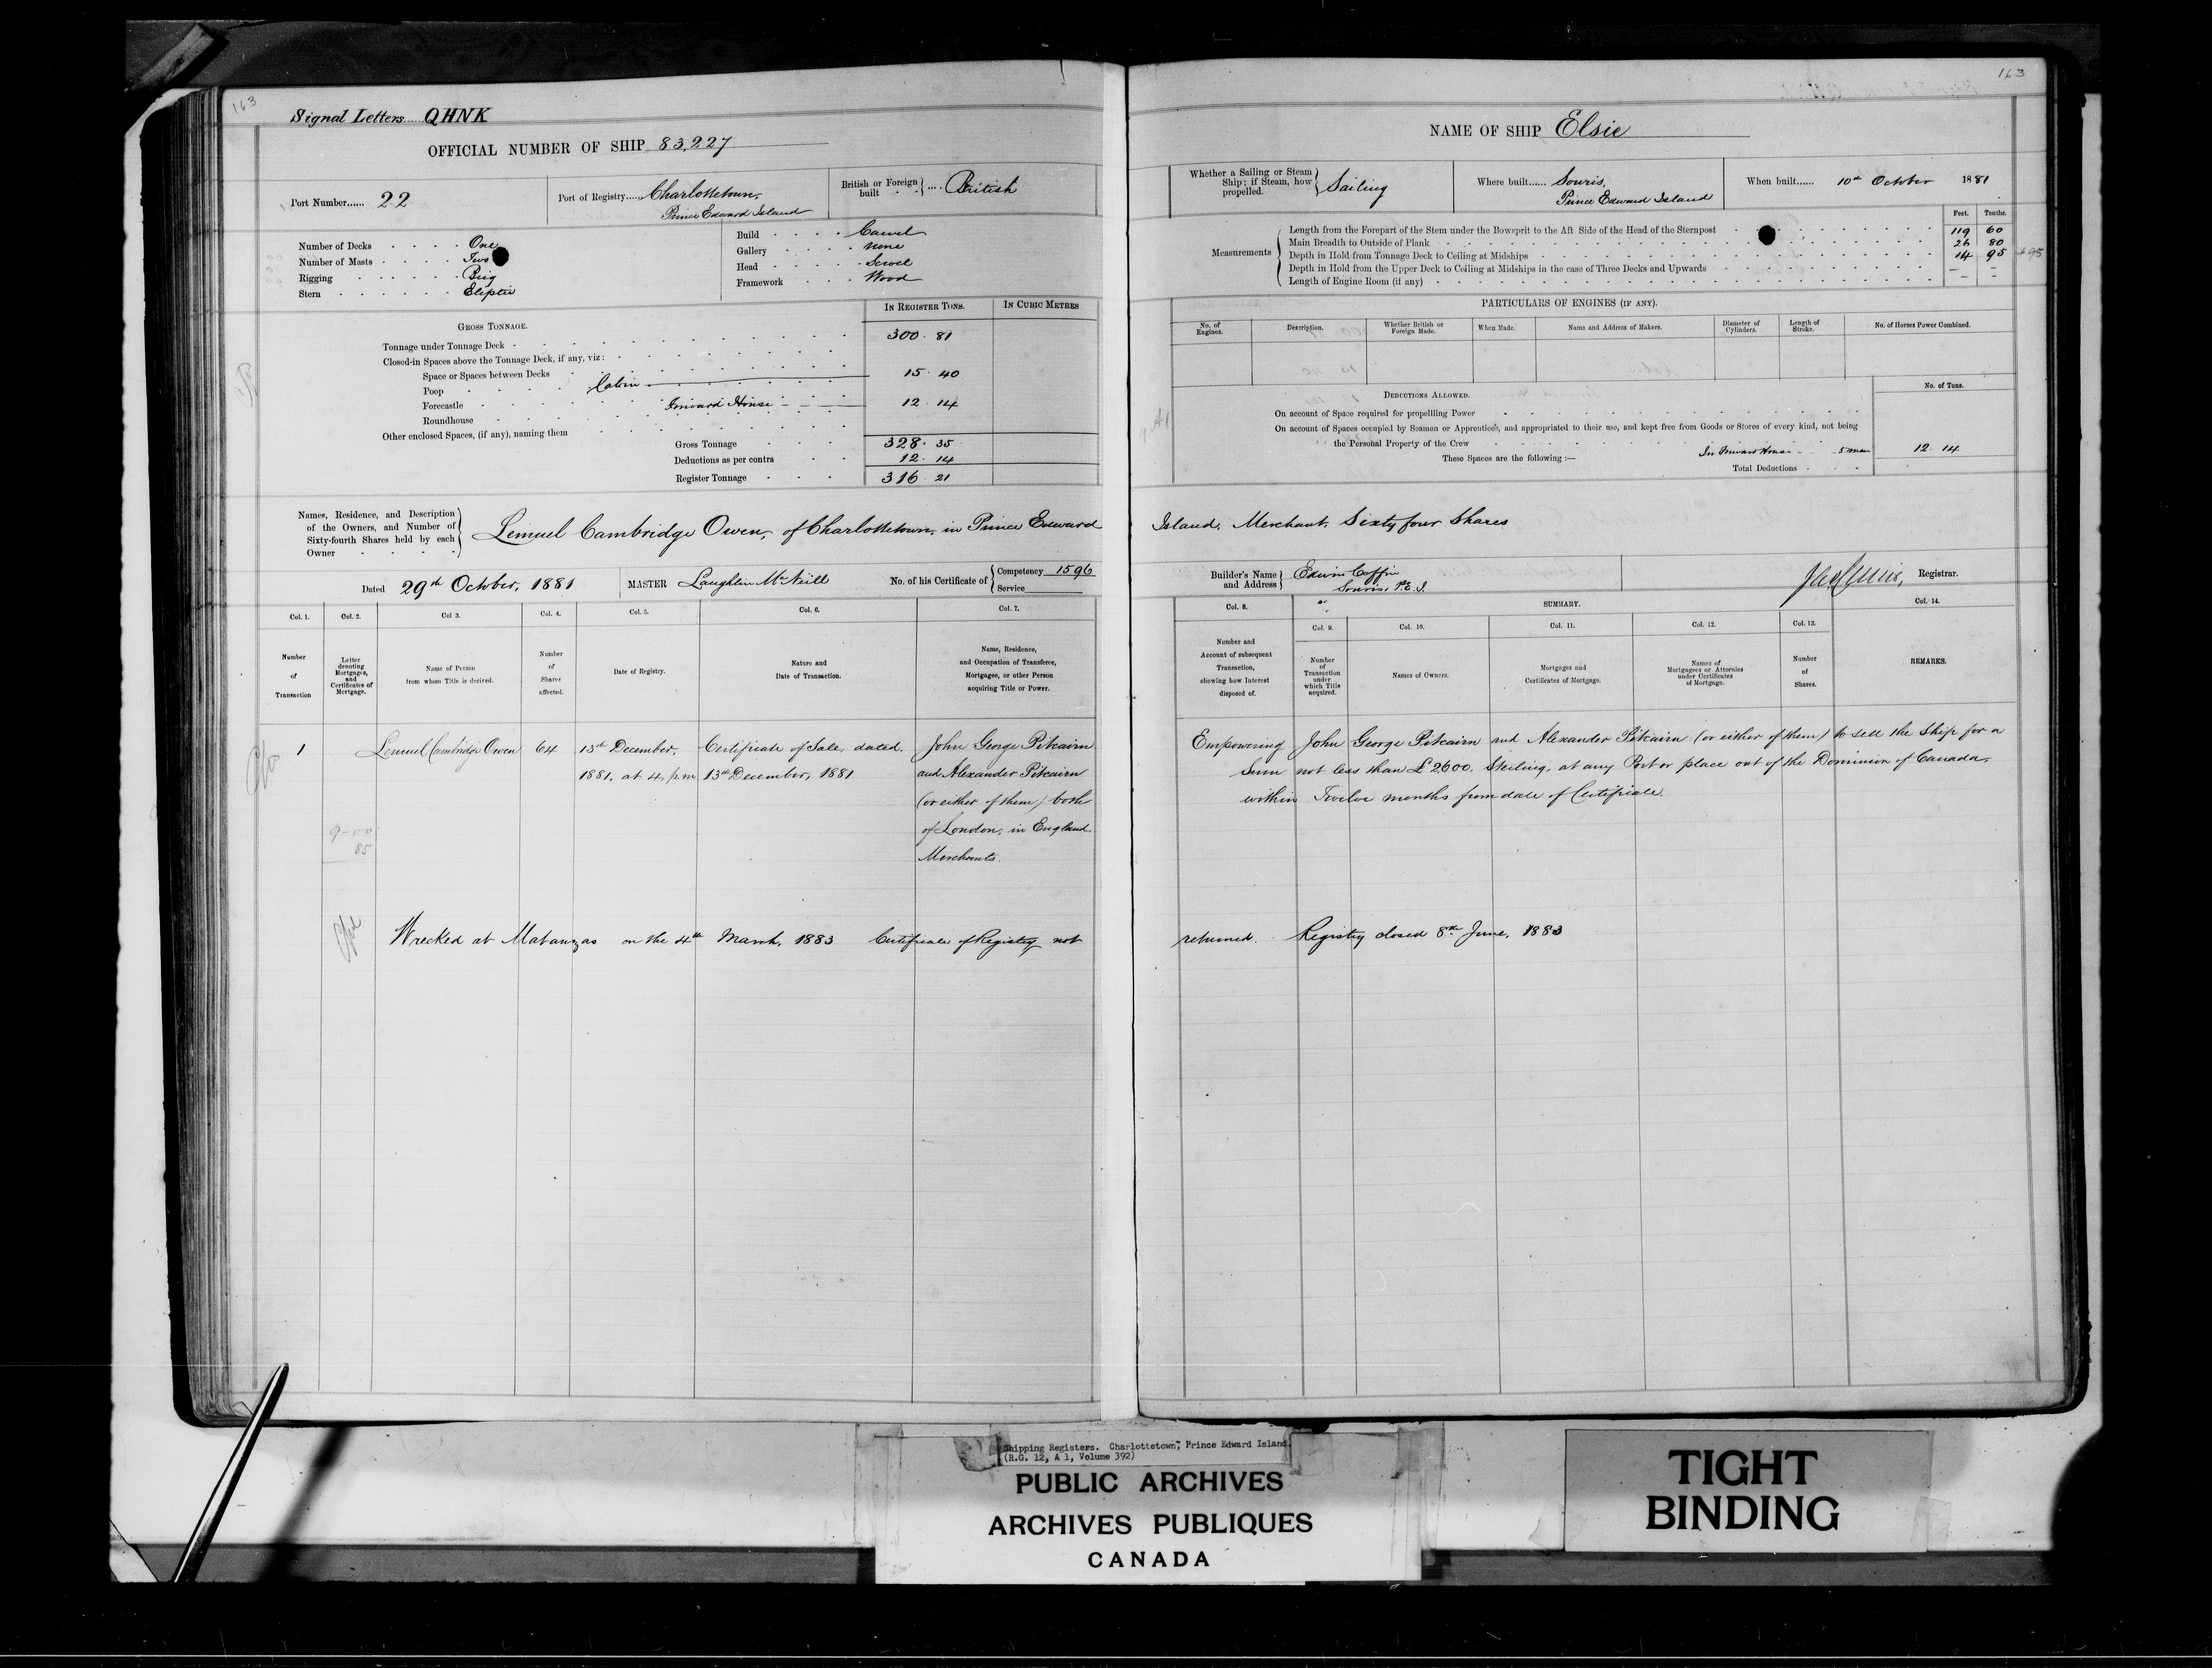 163
Signal Letters QHNK
OFFICIAL NUMBER OF SHIP 83,227
Port Number...... 22
Port of Registry...... Charlottetown,
Prince Edward Island
British or Foreign built .... British
Number of Decks One
Number of Masts Two
Rigging Brig
Stern Eliptic
Build Carvel
Gallery none
Head Scroll
Framework Wood
IN REGISTER TONS. IN CUBIC METRES
GROSS TONNAGE.
Tonnage under Tonnage Deck 300. 81
Closed-in Spaces above the Tonnage Deck, if any, viz:
Space or Spaces between Decks 15. 40
Poop Cabin
Forecastle Forward House 12. 14
Roundhouse
Other enclosed Spaces, (if any), naming them
Gross Tonnage 328. 35
Deductions as per contra 12. 14
Register Tonnage 316. 21
Names, Residence, and Description
of the Owners, and Number of
Sixty-fourth Shares held by each
Owner
Lemuel Cambridge Owen, of Charlottetown, in Prince Edward
Dated 29th October, 1881
MASTER Laughlin McNeill
No. of his Certificate of Competency 1596
Service
Col. 1. Col. 2. Col 3. Col. 4. Col. 5. Col. 6. Col. 7.
Number of Transaction
Letter denoting Mortgages, and Certificates of Mortgage.
Name of Person from whom Title is derived.
Number of Shares affected.
Date of Registry.
Nature and Date of Transaction.
Name, Residence, and Occupation of Transferee, Mortgagee, or other Person acquiring Title or Power.
1 Lemuel Cambridge Owen 64 13th December, Certificate of Sale, dated, John George Pitcairn
1881, at 4, p.m 13th December, 1881 and Alexander Pitcairn
(or either of them) both
of London, in England
Merchants.
9-00
85
Wrecked at Matanzas on the 4th March, 1883 Certificate of Registry not
163
NAME OF SHIP Elsie
Whether a Sailing or Steam Ship; if Steam, how propelled. Sailing
Where built...... Souris,
Prince Edward Island
When built...... 10th October 1881
Feet. Tenths.
Measurements
Length from the Forepart of the Stem under the Bowsprit to the Aft Side of the Head of the Sternpost 119 60
Main Breadth to Outside of Plank 26 80
Depth in Hold from Tonnage Deck to Ceiling at Midships 14 95
Depth in Hold from the Upper Deck to Ceiling at Midships in the case of Three Decks and Upwards – –
Length of Engine Room (if any) – –
PARTICULARS OF ENGINES (IF ANY).
No. of Engines. Description. Whether British or Foreign Made. When Made. Name and Address of Makers. Diameter of Cylinders. Length of Stroke. No. of Horses Power Combined.
DEDUCTIONS ALLOWED. No. of Tons.
On account of Space required for propellling Power
On account of Spaces occupied by Seamen or Apprentices, and appropriated to their use, and kept free from Goods or Stores of every kind, not being
the Personal Property of the Crew In Forward House 5 men 12. 14
These Spaces are the following:—
Total Deductions
Island, Merchant, Sixty four Shares
Builder's Name and Address Edwin Coffin
Souris, P.E.I.
Registrar.
Col. 8. SUMMARY. Col. 14.
Col. 9. Col. 10. Col. 11. Col. 12. Col. 13.
Number and Account of subsequent Transaction, showing how Interest disposed of.
Number of Transaction under which Title acquired.
Names of Owners.
Mortgages and Certificates of Mortgage.
Names of Mortgagees or Attornies under Certificates of Mortgage.
Number of Shares.
REMARKS.
Empowering John George Pitcairn and Alexander Pitcairn (or either of them) to sell the Ship for a
Sum not less than £2600. Sterling, at any Port or place out of the Dominion of Canada,
within Twelve months from date of Certificate.
returned. Registry closed 8th June, 1883
Shipping Registers. Charlottetown, Prince Edward Island.
(R.G. 12, A 1, Volume 392)
PUBLIC ARCHIVES
ARCHIVES PUBLIQUES
CANADA
TIGHT
BINDING